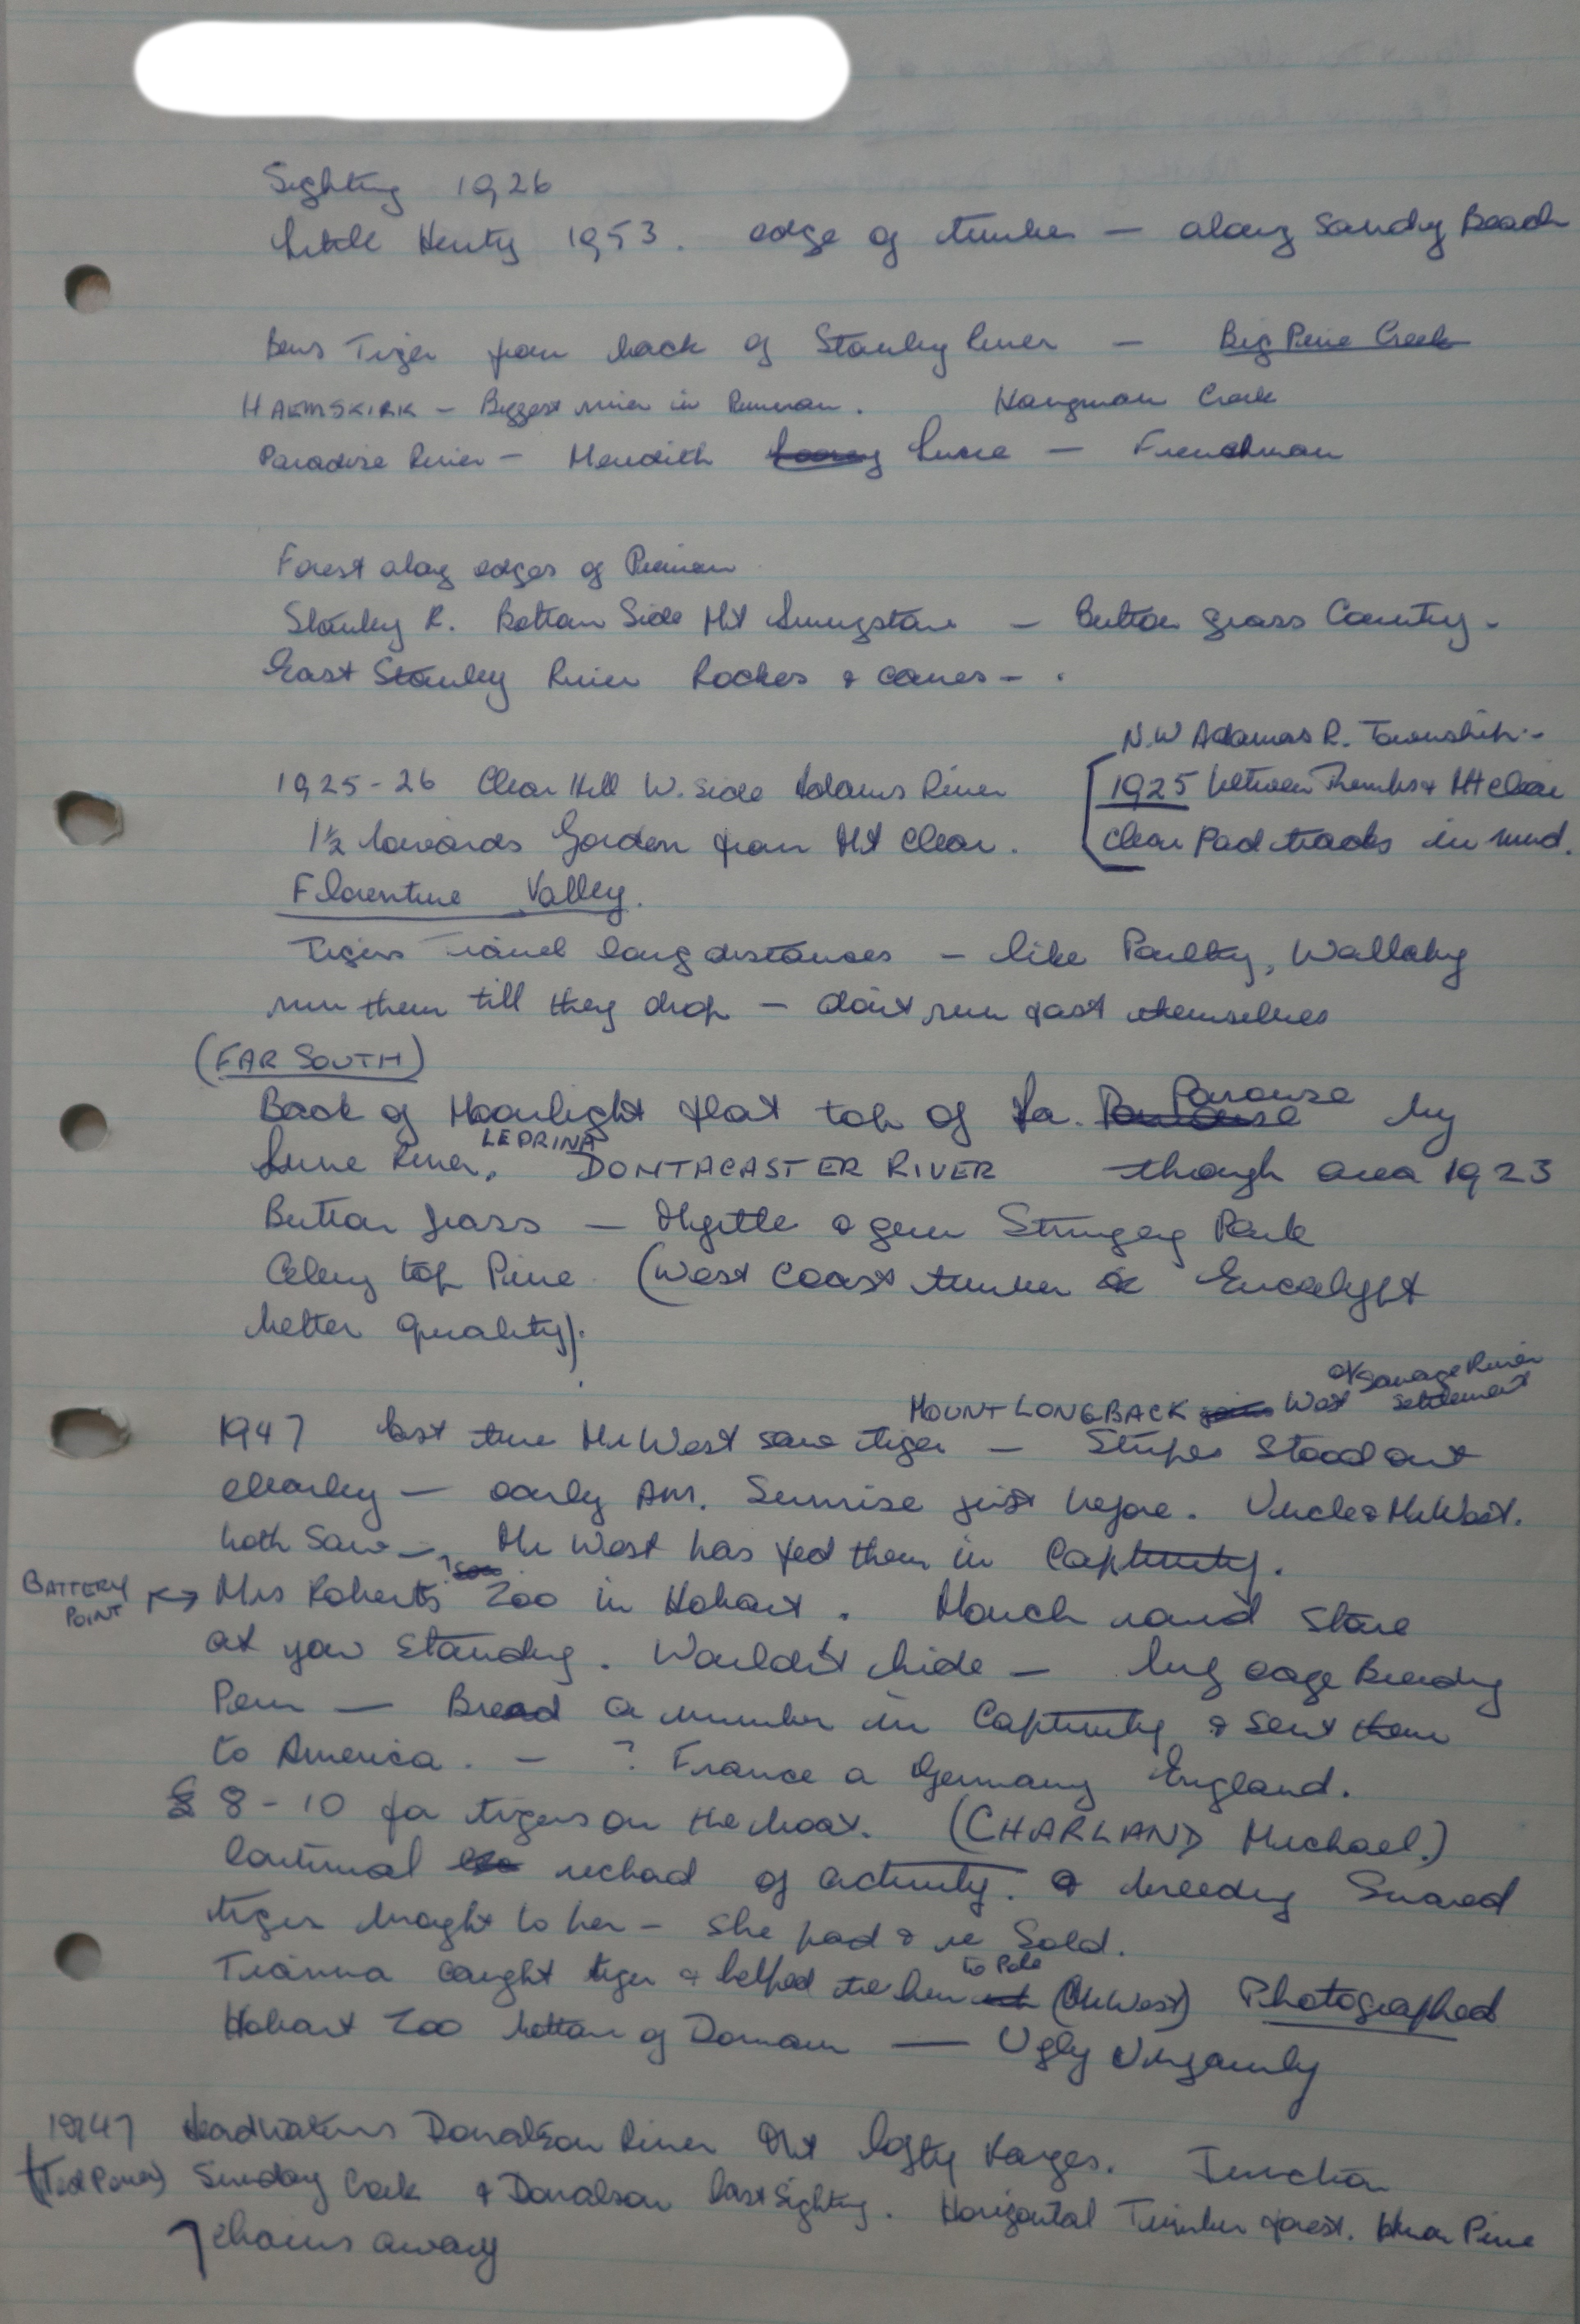 Sighting 1926
Little Henty 1953. edge of timber — along Sandy Beach
Bens Tiger from back of Stanley River — Big Pine Creek
HAEMSKIRK — Biggest river in Pieman. Hangman Creek
Paradise River — Meredith River — Frenchman
Forest along edges of Pieman
Stanley R. Bottom Side Mt Livingstone — Button grass Country.
East Stanley River Rockes & caves — .
N.W Adamas R. Township —
1925-26 Clear Hill W. Side Adams River
1925 between Thumbs & Mt Clear
1½ towards Gordon from Mt Clear.
Clear Pad tracks in mud.
Florentine Valley.
Tigers Travel long distances — like Poultry, Wallaby
run them till they drop — don't run fast themselves
(FAR SOUTH)
Back of Moonlight flat top of La. Parouse by
Lune River, LEPRINA DONTACASTER RIVER through area 1923
Button grass — Myrtle & gum Stringey Bark
Celery top Pine (West Coast timber Eucalypt
better quality).
MOUNT LONGBACK West of Savage River Settlement
1947 last time Mr West saw tiger — Stripes Stood out
clearley — early AM. Sunrise just before. Uncle & Mr West.
both Saw — Mr West has fed them in Captivity.
BATTERY POINT ↔ Mrs Roberts Zoo in Hobart. Mouch round Stare
at you Standing. Wouldn't hide — big cage Breeding
Pen — Bread a number in Captivity & Sent them
to America. — ? France & Germany England.
8-10 for tigers on the boat. (CHARLAND Michael.)
Continual of activity. & breeding Snared
tiger brought to her — She paid & re Sold.
caught tiger & helped tie him to Pole (Mr West) Photographed
Hobart Zoo bottom of Domain — Ugly Ungainly
1947 Headwaters Donalson River Mt Lofty Ranges. Junction
Sunday Creek & Donalson last Sighting. Horizontal Timber forest. Huon Pine
7 chains away